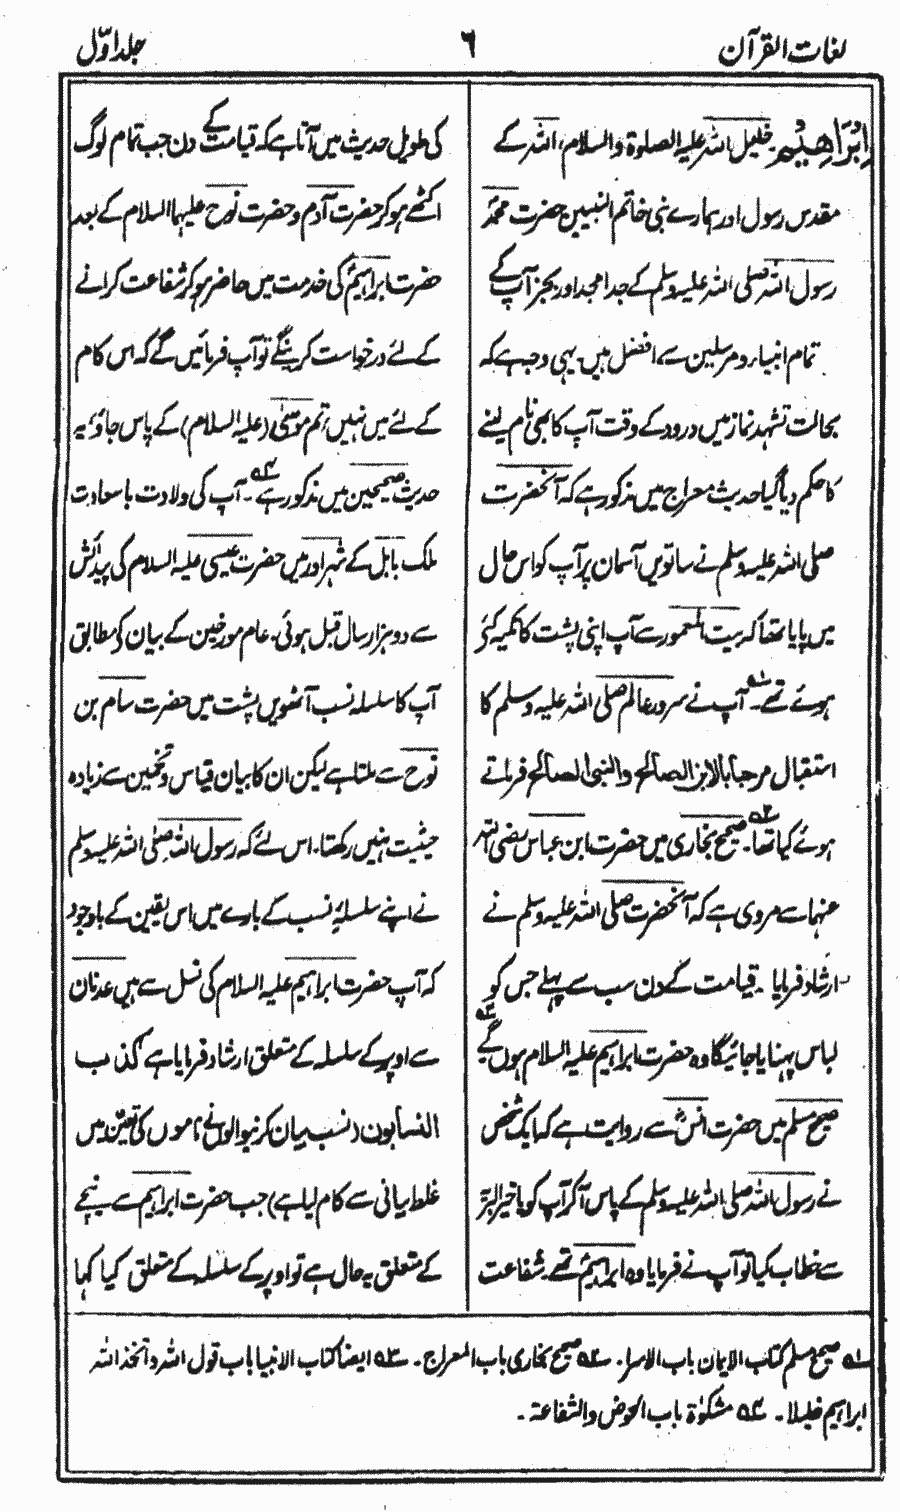 لغات القرآن
٦
جلد اوّل
اِبْرَاهِیْم خلیل اللہ علیہ الصلوۃ والسلام، اللہ کے
مقدس رسول اور ہمارے نبی خاتم النبیین حضرت محمدؐ
رسول اللہ صلی اللہ علیہ وسلم کے جد امجد اور بجز آپ کے
تمام انبیاء و مرسلین سے افضل ہیں۔ یہی وجہ ہے کہ
بحالت تشہد نماز میں درود کے وقت آپ کا بھی نام لینے
کا حکم دیا گیا حدیث معراج میں مذکور ہے کہ آنحضرت
صلی اللہ علیہ وسلم نے ساتویں آسمان پر آپ کو اس حال
میں پایا تھا کہ بیت المعمور سے آپ اپنی پشت کا تکیہ کئے
ہوئے تھے۔ ۱؎ آپ نے سرور عالم صلی اللہ علیہ وسلم کا
استقبال مرحبا بالابن الصالح والنبی الصالح فرماتے
ہوئے کیا تھا۔ ۲؎ صحیح بخاری میں حضرت ابن عباس رضی اللہ
عنہما سے مروی ہے کہ آنحضرت صلی اللہ علیہ وسلم نے
ارشاد فرمایا۔ قیامت کے دن سب سے پہلے جس کو
لباس پہنایا جائیگا وہ حضرت ابراہیم علیہ السلام ہوں گے ۳؎
صحیح مسلم میں حضرت انسؓ سے روایت ہے کہ ایک شخص
نے رسول اللہ صلی اللہ علیہ وسلم کے پاس آکر آپ کو یا خیر البریۃ
سے خطاب کیا تو آپ نے فرمایا وہ ابراہیمؑ تھے۔ شفاعت
کی طویل حدیث میں آتا ہے کہ قیامت کے دن جب تمام لوگ
اکٹھے ہو کر حضرت آدم و حضرت نوح علیہما السلام کے بعد
حضرت ابراہیمؑ کی خدمت میں حاضر ہو کر شفاعت کرانے
کے لئے درخواست کرینگے تو آپ فرمائیں گے کہ اس کام
کے لئے میں نہیں، تم موسٰی (علیہ السلام) کے پاس جاؤ، یہ
حدیث صحیحین میں مذکور ہے ۴؎۔ آپ کی ولادت با سعادت
ملک بابل کے شہر اور میں حضرت عیسٰی علیہ السلام کی پیدائش
سے دو ہزار سال قبل ہوئی۔ عام مورخین کے بیان کے مطابق
آپ کا سلسلہ نسب آٹھویں پشت میں حضرت سام بن
نوح سے ملتا ہے لیکن ان کا بیان قیاس و تخمین سے زیادہ
حیثیت نہیں رکھتا۔ اس لئے کہ رسول اللہ صلی اللہ علیہ وسلم
نے اپنے سلسلۂ نسب کے بارے میں اس یقین کے باوجود
کہ آپ حضرت ابراہیم علیہ السلام کی نسل سے ہیں عدنان
سے اوپر کے سلسلہ کے متعلق ارشاد فرمایا ہے کذب
النسابون (نسب بیان کرنیوالوں نے ناموں کی تعیین میں
غلط بیانی سے کام لیا ہے) جب حضرت ابراہیم سے نیچے
کے متعلق یہ حال ہے تو اوپر کے سلسلہ کے متعلق کیا کہا
۱؎ صحیح مسلم کتاب الایمان باب الاسرا۔ ۲؎ صحیح بخاری باب المعراج۔ ۳؎ ایضا کتاب الانبیا باب قول اللہ واتخذ اللہ
ابراہیم خلیلا۔ ۴؎ مشکوٰۃ باب الحوض والشفاعۃ۔